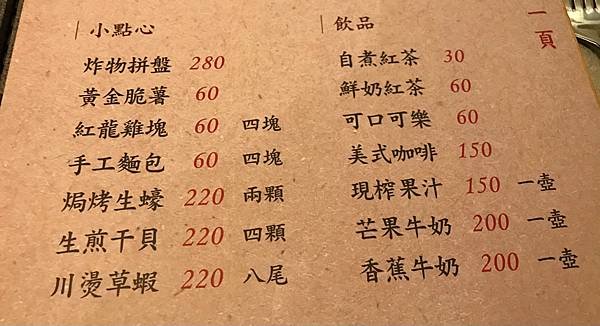 小點心
炸物拼盤 280
黃金脆薯 60
紅龍雞塊 60 四塊
手工麵包 60 四塊
焗烤生蠔 220 兩顆
生煎干貝 220 四顆
川燙草蝦 220 八尾
飲品
自煮紅茶 30
鮮奶紅茶 60
可口可樂 60
美式咖啡 150
現榨果汁 150 一壺
芒果牛奶 200 一壺
香蕉牛奶 200 一壺
一頁